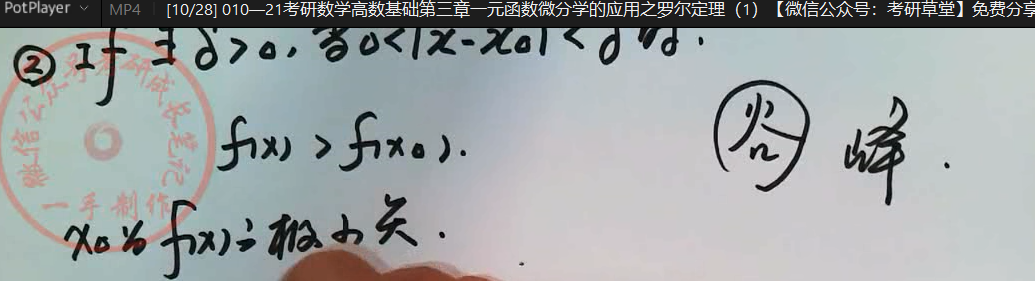 PotPlayer MP4 [10/28] 010—21考研数学高数基础第三章一元函数微分学的应用之罗尔定理（1）【微信公众号：考研草堂】免费分享
② If ∃ δ>0, 当0<|x-x₀|<δ时.
f(x) > f(x₀).
谷 峰.
x₀为f(x)之极小点.
一手制作